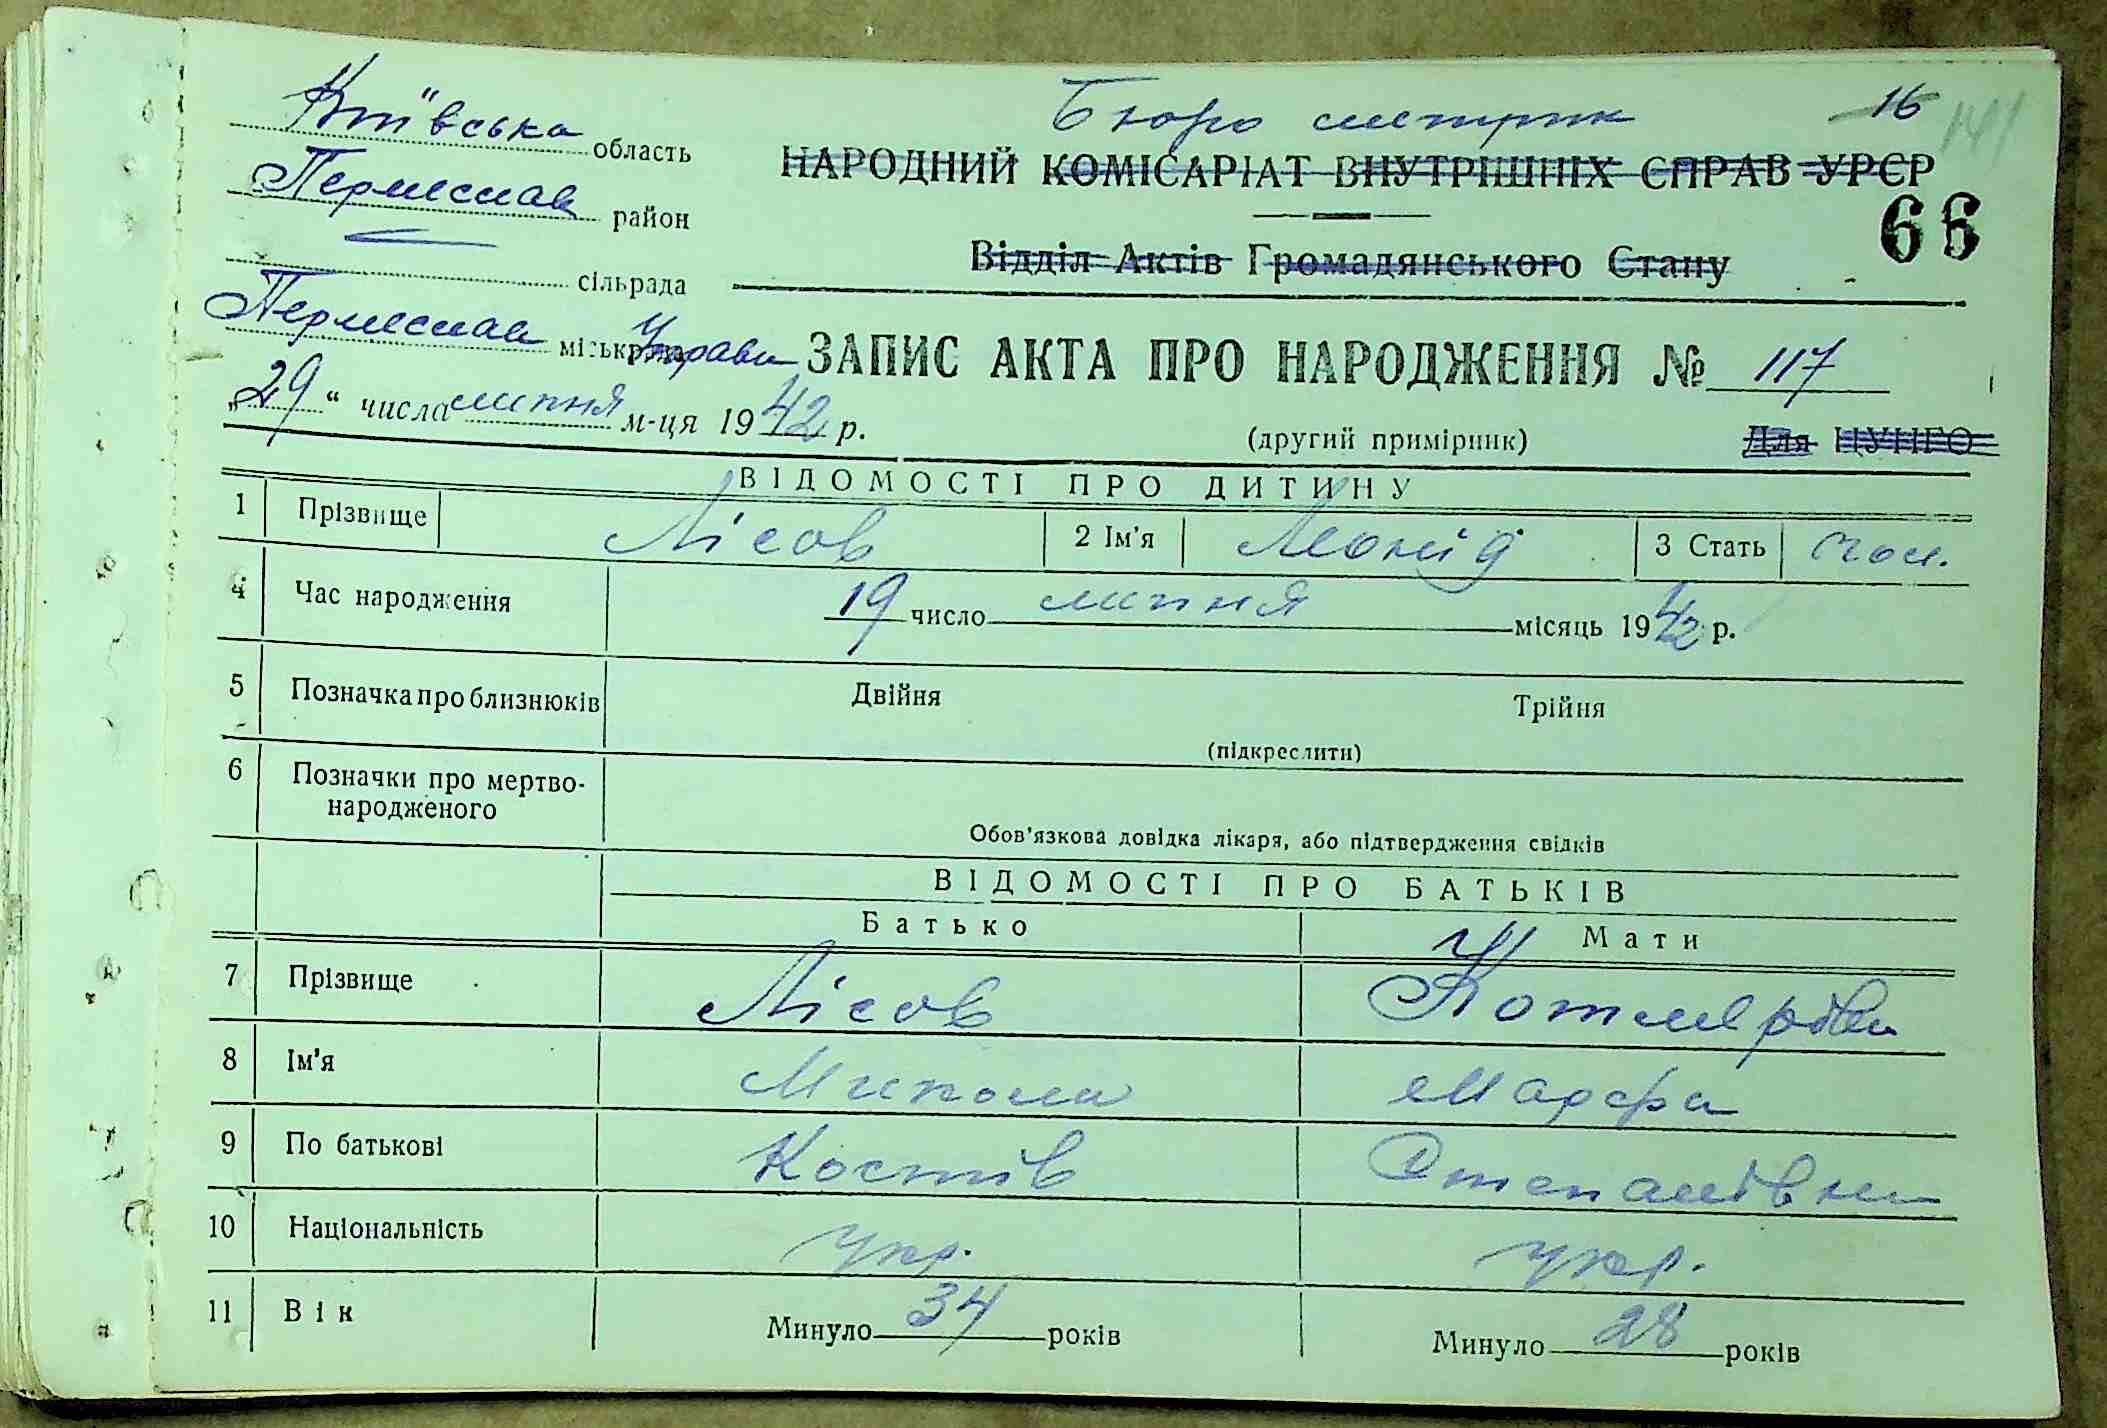 Київська область
Бюро метрик 16
141
Переяслав район
НАРОДНИЙ КОМІСАРІАТ ВНУТРІШНІХ СПРАВ УРСР
66
сільрада
Відділ Актів Громадянського Стану
Переяслав міськрада Управа
ЗАПИС АКТА ПРО НАРОДЖЕННЯ № 117
„29“ числа липня м-ця 1942 р.
(другий примірник) Для ЦУНГО
ВІДОМОСТІ ПРО ДИТИНУ
1 Прізвище Лісов 2 Ім'я Леонід 3 Стать чол.
4 Час народження 19 число липня місяць 1942 р.
5 Позначка про близнюків Двійня Трійня
(підкреслити)
6 Позначки про мертво-
народженого
Обов'язкова довідка лікаря, або підтвердження свідків
ВІДОМОСТІ ПРО БАТЬКІВ
Батько Мати
7 Прізвище Лісов
8 Ім'я Микола Марфа
9 По батькові Костів Степанівна
10 Національність укр. укр.
11 Вік Минуло 34 років Минуло 28 років